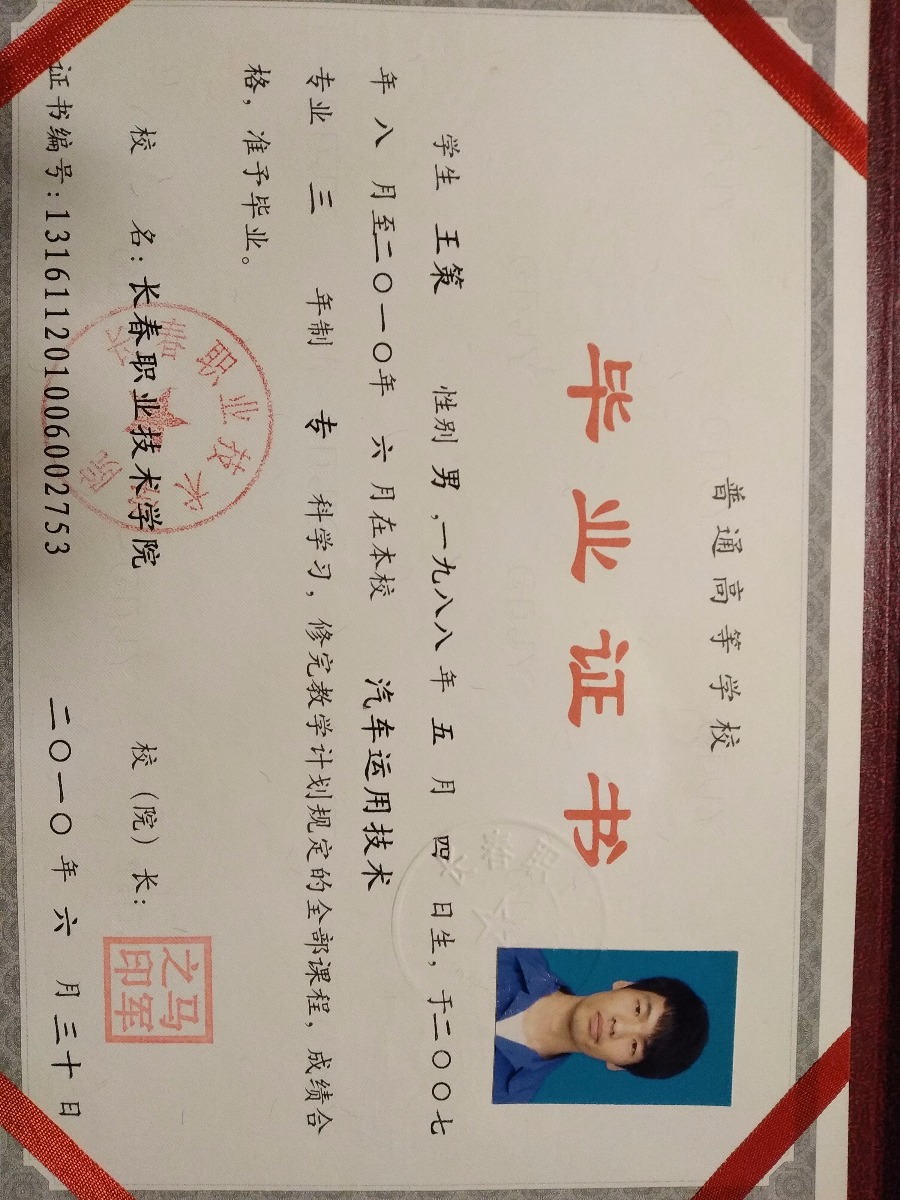 普通高等学校
毕业证书
学生 王策 性别 男，一九八八 年 五 月 四 日生，于二〇〇七
年 八 月至二〇一〇年 六 月在本校 汽车运用技术
专业 三 年制 专 科学习，修完教学计划规定的全部课程，成绩合
格，准予毕业。
校 名：长春职业技术学院 校（院）长：
证书编号：131611201006002753 二〇一〇年 六 月三十日